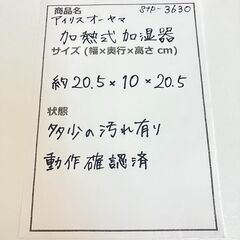 商品名 stp-3630
アイリスオーヤマ
加熱式加湿器
サイズ (幅×奥行×高さ cm)
約20.5×10×20.5
状態
多少の汚れ有り
動作確認済